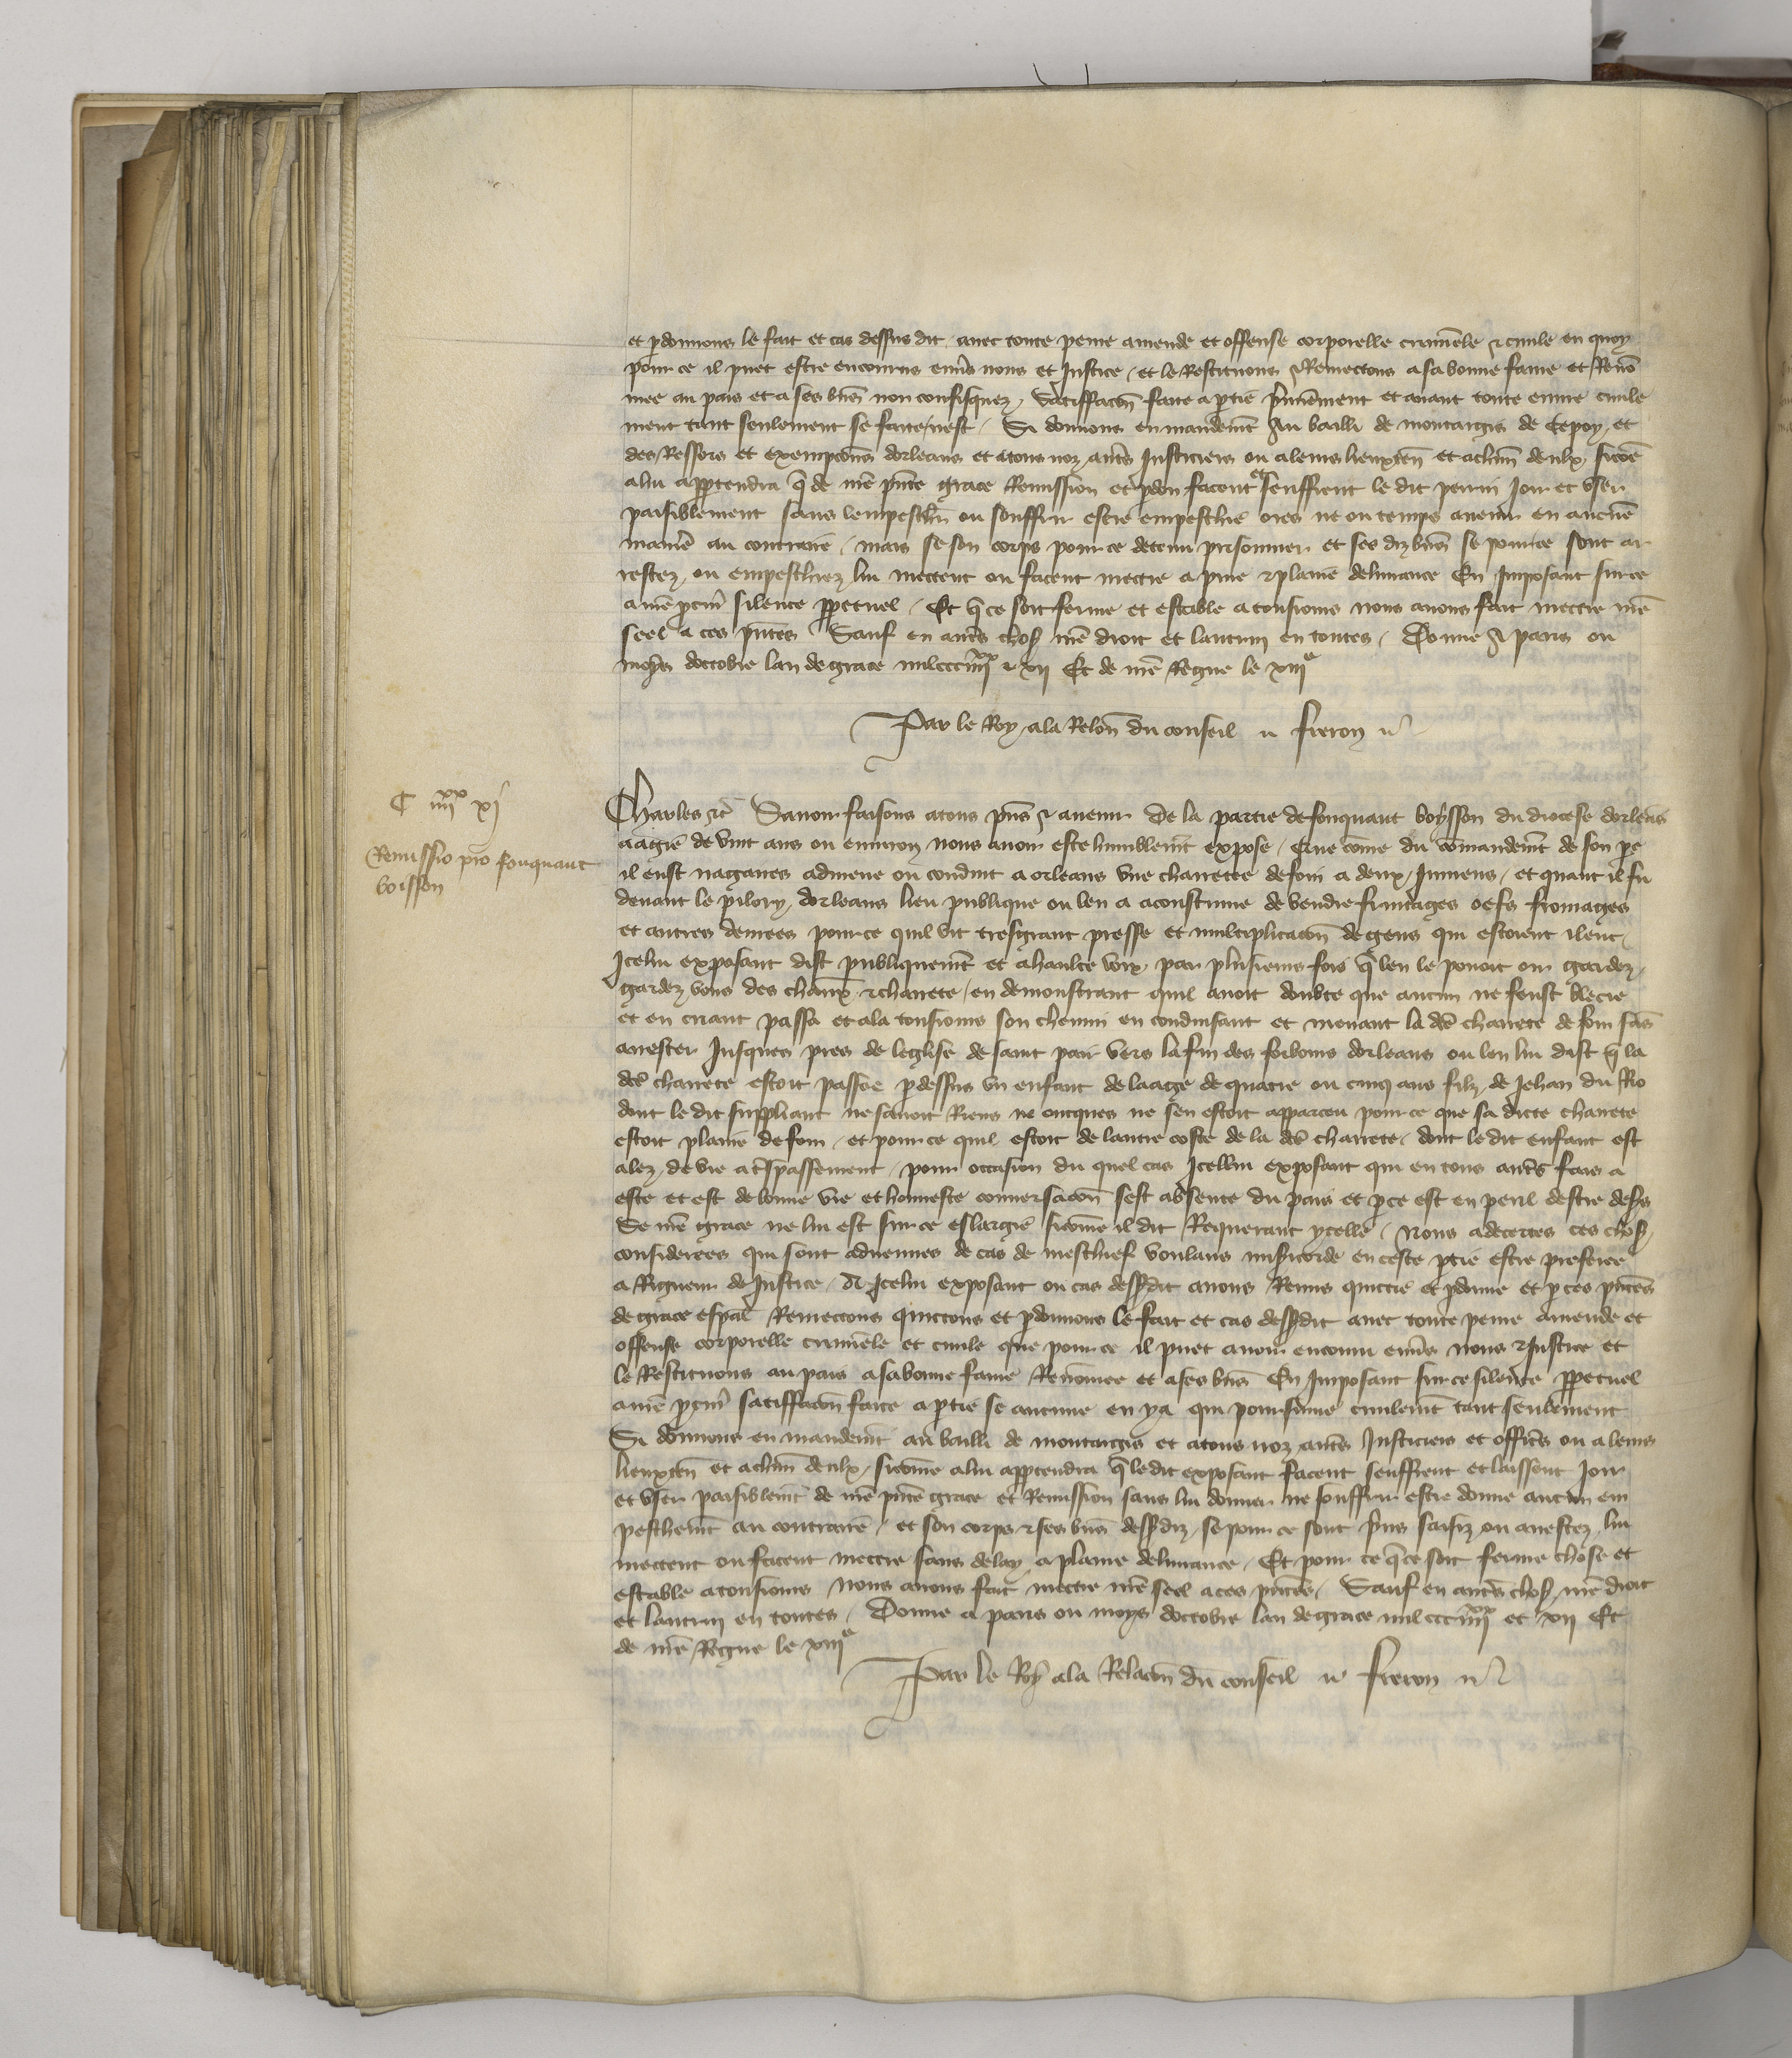 et pdonnons le fait et cas dessus dit avec toute peine amende et offense corporelle criminele & civile en quoy
pour ce il puet estre encouruz envs nous et Justice / et le Restituons & Remectons a sa bonne fame et Renō
mee au pais et a ses biēs non confisquez / Satiffacōn faite a ptie premierement et avant toute euvre civile
ment tant seulement se faite nest / Si donnons en mandemēt Au bailli de montargis de Cepoy et
des Ressors et exempcōns dorleans et a tous noz autēs Justiciers ou a leurs lieuxtēn et a chūn deulx sicōe
a lui apptendra q̄ de nrē pñte grace Remission et pdon facent et seuffrent le dit perrin Joir et user
paisiblement sans lempeschr ou souffrir estre empeschie ores ne ou temps avenir en aucune
manie au contraire / mais se son corps pour ce detenu prisonnier et ses diz biēs se pour ce sont ar
restez ou empeschiez lui mectent ou facent mectre a pure & plaine delivrance En Imposant sur ce
a nrē pcur silence ppetuel / Et q̄ ce soit ferme et estable a tousiours nous avons fait mectre nrē
seel a ces pñtes Sauf en autēs chos nrē droit et lautruy en toutes / Donne A paris ou
moys doctobre lan de grace mil ccc iiiixx & xii Et de nrē Regne le xiiie
Par le Roy a la Relōn du conseil n freron n
C iiiixx xi
Remissio pro fouquaut
boisson
Charles &c Savoir faisons a tous pñs & avenir De la partie de fouquaut boysson du diocese dorleās
aagie de vint ans ou environ nous avoir este humblemēt expose / Que cōme du cōmandemēt de son pe
il eust nagaires admene ou conduit a orleans une charretee de foin a deux Jumens / et quant il fu
devant le pilory dorleans lieu publique ou len a acoustume de vendre fruitages oefs fromages
et autres denrees pour ce quil vit tresgrant presse et multiplicacōn de gens qui estoient ilenc /
Icelui exposant dist publiquemēt et a haulte voix par plusieurs fois q̄ len le pouoit oir gardez
gardez vous des chevaux & charrete / en demonstrant quil avoit doubte que aucun ne feust blecie
et en criant passa et ala tousiours son chemin en conduisant et menant la dcē charrete de foin sās
arrester Jusques pres de leglise de saint pair vers la fin des forbours dorleans ou len lui dist q̄ la
dcē charrete estoit passee pdessus un enfant de laage de quatre ou cinq ans filz de Jehan du Ro
dont le dit suppliant ne savoit Riens ne oncques ne sen estoit apparceu pour ce que sa dicte charrete
estoit plaine de foin / et pour ce quil estoit de lautre coste de la dcē charrete / dont le dit enfant est
alez de vie a trespassement / pour occasion du quel cas Icellui exposant qui en tous autēs fais a
este et est de bonne vie et honneste conversacōn sest absente du pais et p ce est en peril destre desers
Se nrē grace ne lui est sur ce eslargie sicōme il dit Requerant ycelle / Nous adecertes ces chos
considerees qui sont advenues de cas de meschief voulans misericorde en ceste ptie estre preferee
a Rigueur de Justice / A Icelui exposant ou cas dessdit avons Remis quictie et pdonne et p ces pñtes
de grace espal Remectons quictons et pdonnons le fait et cas dessdit avec toute peine amende et
offense corporelle criminele et civile que pour ce il puet avoir encouru envs nous & Justice et
le Restituons au pais a sa bonne fame Renōmee et a ses biēs En Imposant sur ce silence ppetuel
a nrē pcur satiffacōn faite a ptie se aucune en y a qui poursuive civilemēt tant seulement
Si donnons en mandemēt au bailli de montargis et a tous noz autēs Justiciers et officēs ou a leurs
lieuxtēn et a chūn deulx sicōme a lui apptendra q̄ le dit exposant facent seuffrent et laissent Joir
et user paisiblemēt de nrē pñte grace et Remission sans lui donner ne souffrir estre donne aucun em
peschemēt au contraire / et son corps & ses biēs dessdiz se pour ce sont prins saisiz ou arrestez lui
mectent ou facent mectre sans delay a plaine delivrance / Et pour ce q̄ ce soit ferme chose et
estable a tousiours nous avons fait mectre nrē seel a ces pñtes / Sauf en autēs chos nrē droit
et lautruy en toutes / Donne a paris ou moys doctobre lan de grace mil ccc iiiixx et xii Et
de nrē Regne le xiiie
Par le Roy a la Relacōn du conseil n freron n